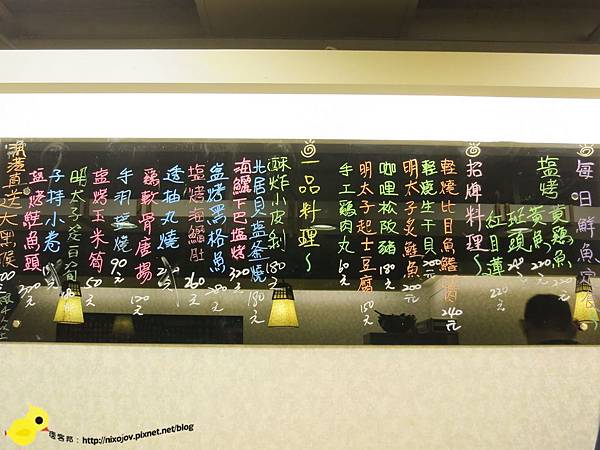 每日鮮魚
鹽烤
黃雞魚
黃魚 220元
斑頭 240元
紅目蓮 220元
招牌料理~
輕燒比目魚鰭 240元
輕燒生干貝 200元
明太子炙鮭魚 200元
咖哩松阪豬 180元
明太子起士豆腐 150元
手工雞肉丸 60元
一品料理~
酥炸小皮剝 180元
北居貝塩条燒 180元
海鱺下巴塩烤 320元
塩烤黑格魚 280元
塩烤海鱺肚 260元
透抽丸燒
雞軟骨唐揚 120元
手羽塩燒 90元
塩烤玉米筍 50元
明太子
子持小卷
塩烤鮭魚頭
港直送大黑喉
痞客邦：http://nixojov.pixnet.net/blog